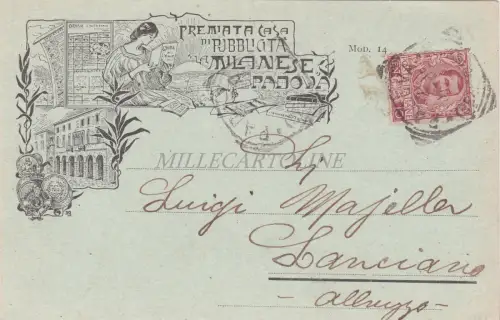 PREMIATA CASA
DI PUBBLICITÀ
MILANESE
PADOVA
MOD. 14
MILLECARTOLINE
Luigi Majella
Lanciano
- Abruzzo -